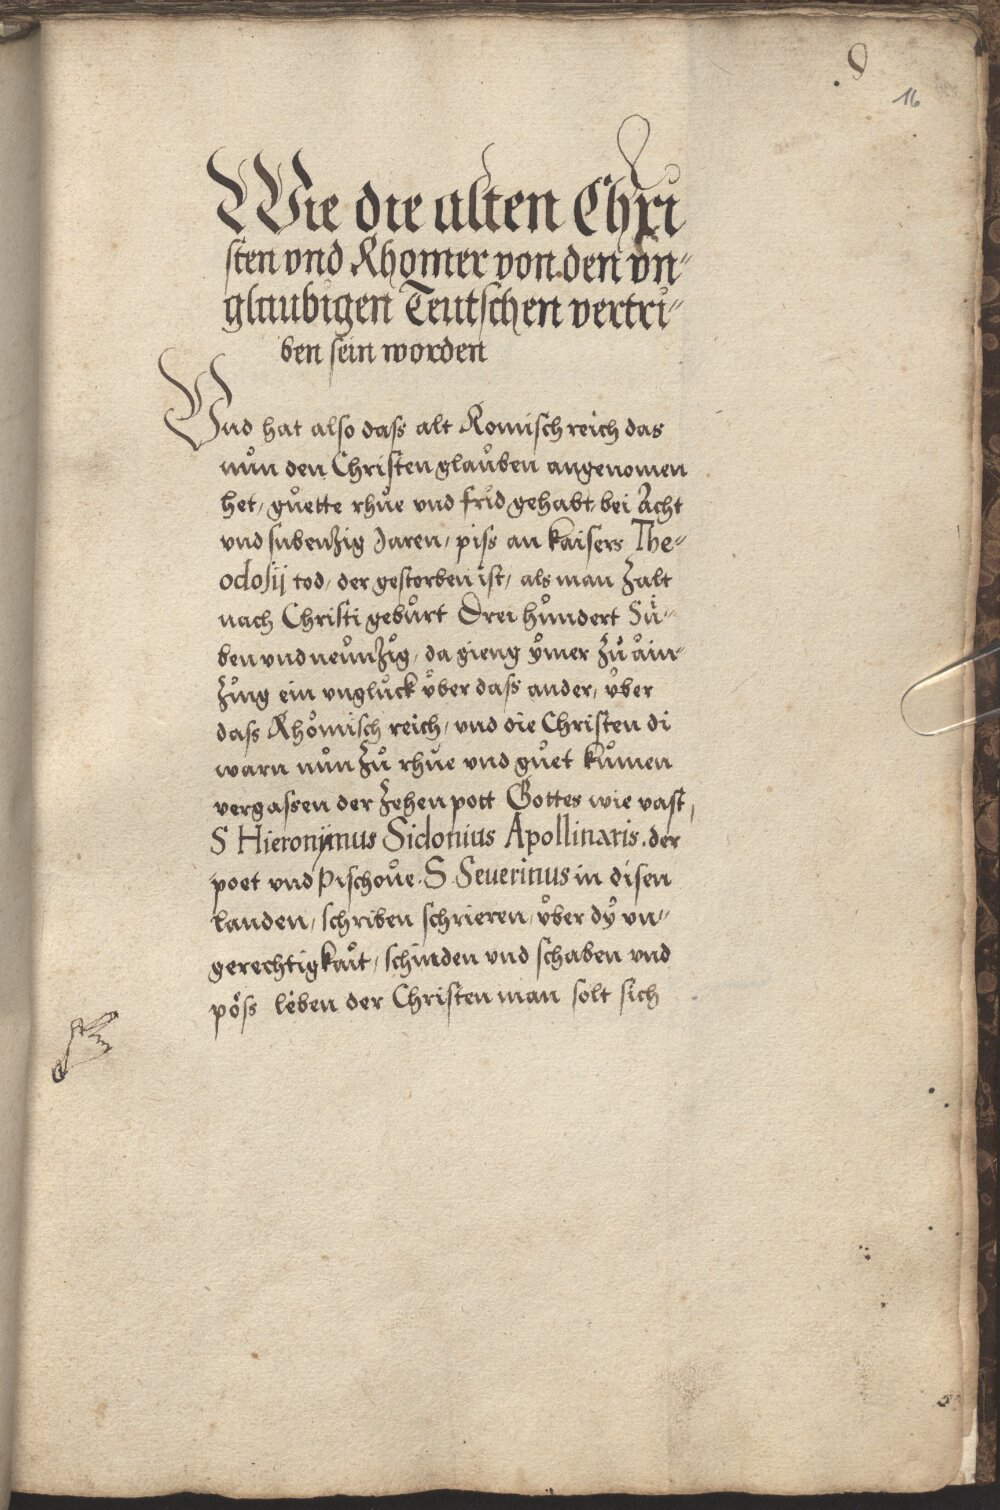 16
Wie die alten Chri
sten vnd Rhomer von den vn„
glaubigen Teutschen vertri„
ben sein worden
Vnd hat also dass alt Romisch reich das
nůn den Christen glaůben angenomen
het, gůette rhůe vnd frid gehabt, bei Acht
vnd subenzig Jaren, piss an kaisers The„
odosij tod, der gestorben ist, als man zalt
nach Christi gebůrt Drei hůndert Sů„
ben vnd neůnzig, da gieng ÿmer zů åin„
zůng ein vnglůck ůber dass ander, ůber
dass Rhömisch reich, vnd die Christen di
warn nůn zů rhůe vnd gůet kůmen
vergassen der zehen pott Gottes wie vast,
S Hieronÿmus Sidonius Apollinaris. der
poet vnd Pischoue. S. Seuerinus in disen
landen, schriben schrieren, ůber dÿ vn„
gerechtigkait, schinden vnd schaben vnd
pöss leben der Christen man solt sich